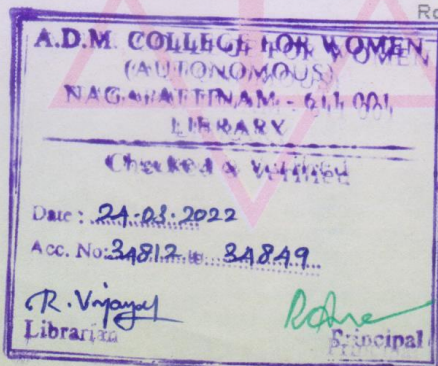 Ro
A.D.M. COLLEGE FOR WOMEN
(AUTONOMOUS)
NAGAPATTINAM - 611 001
LIBRARY
Checked & Verified
Date : 24.03.2022
Acc. No: 34812 to 34849
R. Vijayal
Librarian Principal